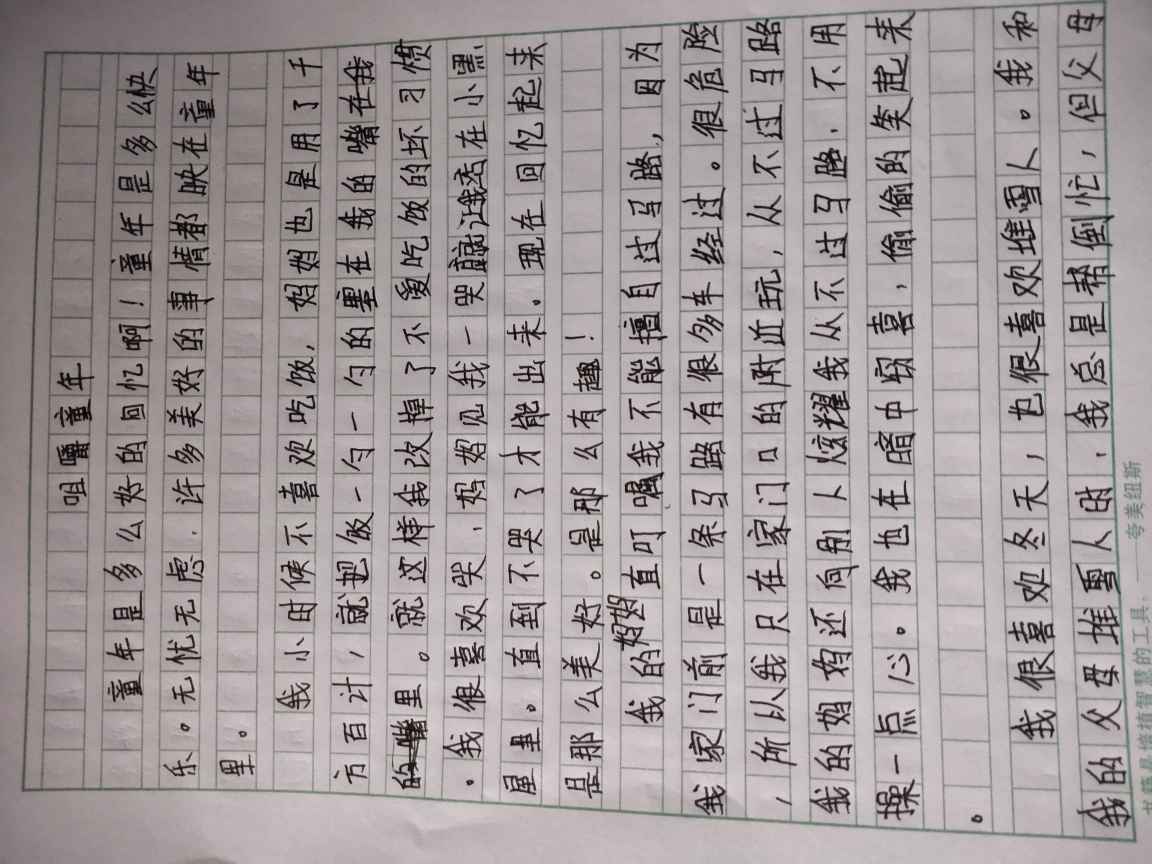 咀嚼童年
童年是多么好的回忆啊！童年是多么快
乐。无忧无虑．许多美好的事情都映在童年
里。
我小时候不喜欢吃饭，妈妈也是用了千
方百计，就把饭一勺一勺的塞在我的嘴在我
的嘴里。就这样我改掉了不爱吃饭的坏习惯
。我很喜欢哭、妈妈见我一哭就让我活在小黑
屋里。直到不哭了才能出来。现在回忆起来
是那么美好。是那么有趣！
我的妈妈直叮嘱我不能擅自过马路，因为
我家门前是一条马路有很多车经过。很危险
，所以我只在家门口的附近玩，从不过马路
我的妈妈还向别人炫耀我从不过马路．不用
操一点心。我也在暗中窃喜，偷偷的笑起来
。
我很喜欢冬天，也很喜欢堆雪人。我和
我的父母堆雪人时，我总是帮倒忙，但父母
书籍是培植智慧的工具，——夸美纽斯